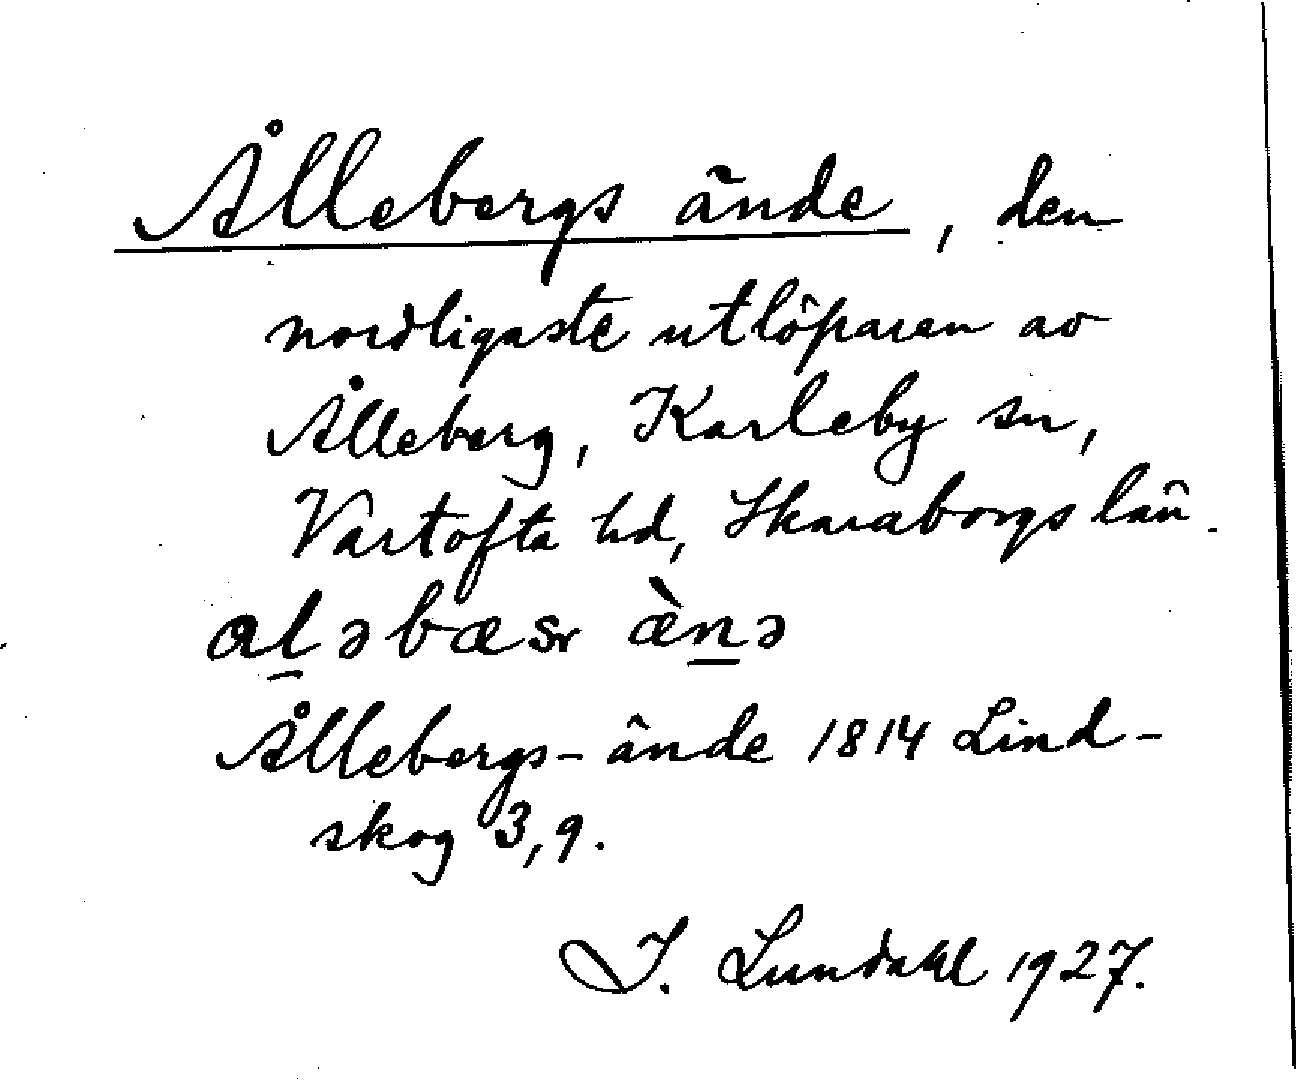 Ållebergs ände, den
nordligaste utlöparen av
Ålleberg, Karleby sn,
Vartofta hd, Skaraborgs län.
ɑl̠əbæsr æ̀n̠ə
Ållebergs-ände 1814 Lind-
skog 3,9.
I. Lundahl 1927.